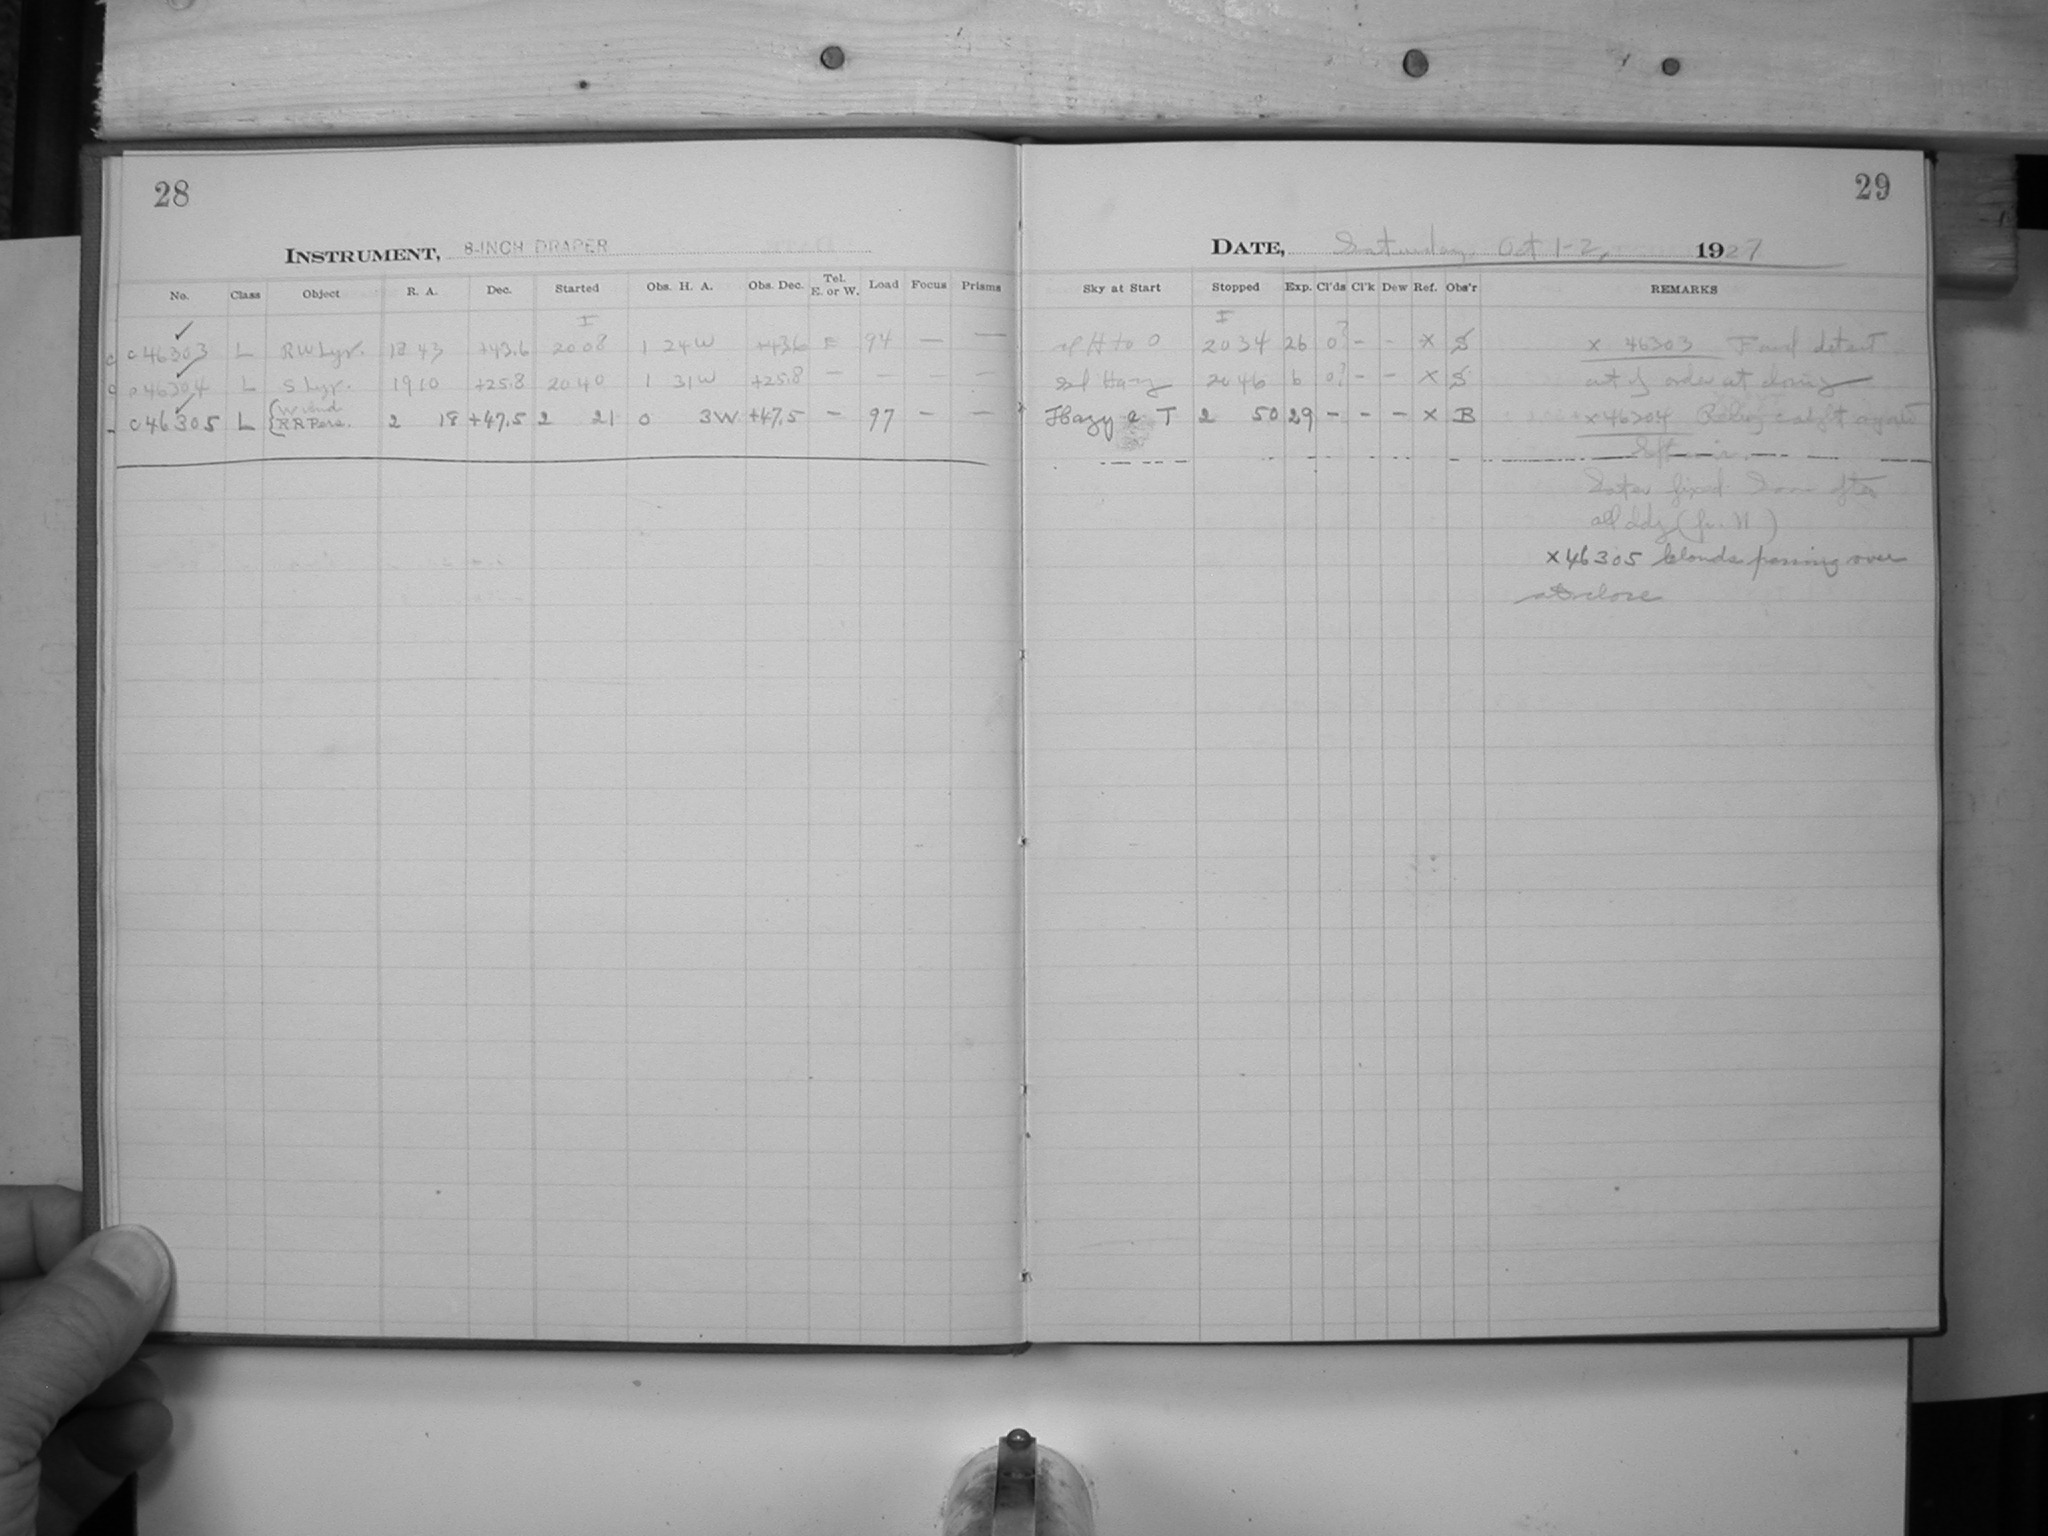 28
INSTRUMENT, 8-INCH DRAPER
No. Class Object R. A. Dec. Started Obs. H. A. Obs. Dec. Tel. E. or W. Load Focus Prisms
c46303 L RW Lyr. 18 43 +43.6 20 08 1 24 W +43.6 E 94 — —
c46304 L S Lyr. 19 10 +25.8 20 40 1 31 W +25.8 — — — —
c46305 L { W And RR Pers. 2 18 +47.5 2 21 0 3 W +47.5 — 97 — —
29
DATE, Saturday, Oct 1-2, 1927
Sky at Start Stopped Exp. Cl'ds Cl'k Dew Ref. Obs'r REMARKS
H to 0 20 34 26 0? - - X S x 46303 Found detent
Hazy 20 46 6 0? - - X S out of order at closing
Hazy T 2 50 29 - - - X B x 46304
Later fixed. Soon after
all cldy (fr. N)
x 46305 Clouds passing over
at close